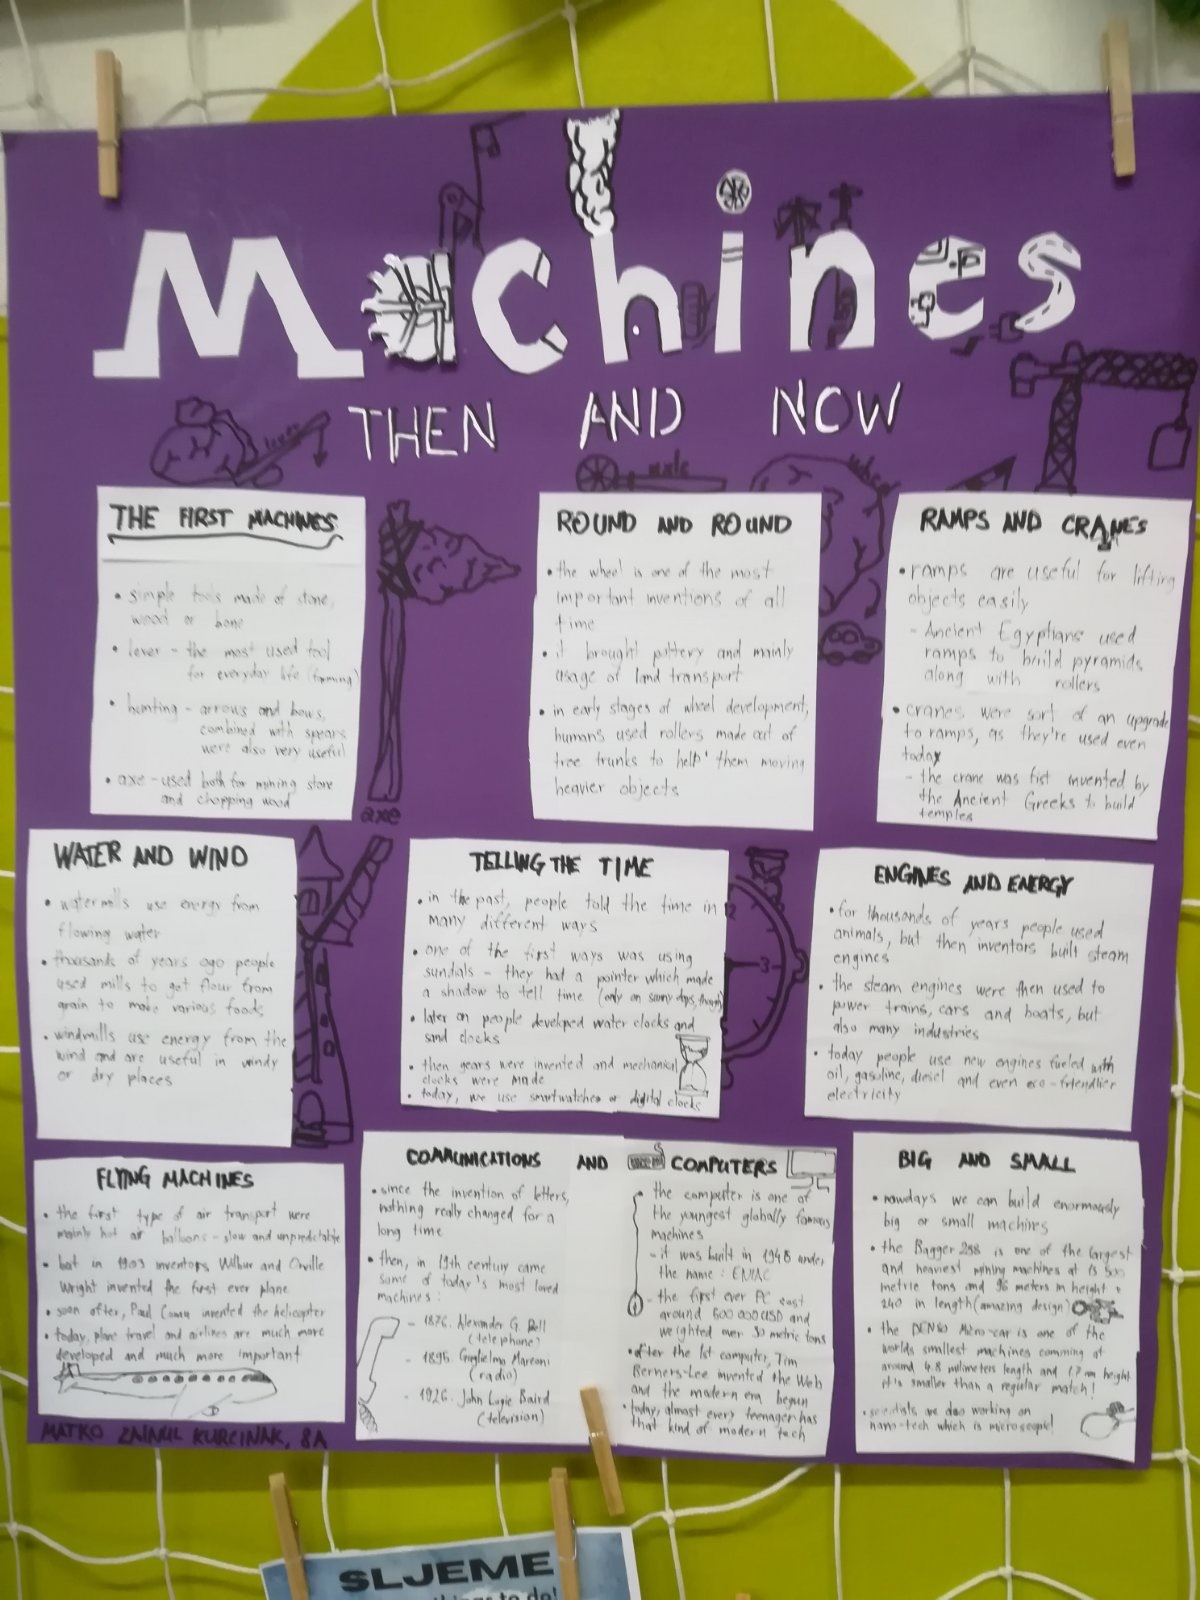 Machines
THEN AND NOW
lever
axle
wheel
THE FIRST MACHINES
• simple tools made of stone,
wood or bone
• lever - the most used tool
for everyday life (farming)
• hunting - arrows and bows,
combined with spears
were also very useful
• axe - used both for mining stone
and chopping wood
axe
ROUND AND ROUND
• the wheel is one of the most
important inventions of all
time
• it brought pottery and mainly
usage of land transport
• in early stages of wheel development,
humans used rollers made out of
tree trunks to help them moving
heavier objects
RAMPS AND CRANES
• ramps are useful for lifting
objects easily
- Ancient Egyptians used
ramps to build pyramids
along with rollers
• cranes were sort of an upgrade
to ramps, as they're used even
today
- the crane was fist invented by
the Ancient Greeks to build
temples
WATER AND WIND
• watermills use energy from
flowing water
• thousands of years ago people
used mills to get flour from
grain to make various foods
• windmills use energy from the
wind and are useful in windy
or dry places
TELLING THE TIME
• in the past, people told the time in
many different ways
• one of the first ways was using
sundals - they had a pointer which made
a shadow to tell time (only on sunny days, though)
• later on people developed water clocks and
sand clocks
• then gears were invented and mechanical
clocks were made
• today, we use smartwatches or digital clocks
12
3
ENGINES AND ENERGY
• for thousands of years people used
animals, but then inventors built steam
engines
• the steam engines were then used to
power trains, cars and boats, but
also many industries
• today people use new engines fueled with
oil, gasoline, diesel and even eco-friendlier
electricity
FLYING MACHINES
• the first type of air transport were
mainly hot air balloons - slow and unpredictable
• but in 1903 inventors Wilbur and Orville
Wright invented the first ever plane
• soon after, Paul Cornu invented the helicopter
• today, plane travel and airlines are much more
developed and much more important
COMMUNICATIONS AND COMPUTERS
• since the invention of letters,
nothing really changed for a
long time
• then, in 19th century came
some of today's most loved
machines:
- 1876. Alexander G. Bell
(telephone)
- 1895. Guglielmo Marconi
(radio)
- 1926. John Logie Baird
(television)
• the computer is one of
the youngest globally famous
machines
- it was built in 1948 under
the name: ENIAC
- the first ever PC cost
around 600 000 USD and
weighted over 30 metric tons
• after the 1st computer, Tim
Berners-Lee invented the Web
and the modern era begun
• today, almost every teenager has
that kind of modern tech
BIG AND SMALL
• nowdays we can build enormously
big or small machines
• the Bagger 288 is one of the largest
and heaviest mining machines at 13 500
metric tons and 96 meters in height +
240 in length (amazing design)
• the DENSO Micro-car is one of the
worlds smallest machines comming at
around 4.8 milimeters length and 1.7 mm height
it's smaller than a regular match!
• scientists are also working on
nano-tech which is microscopic!
MATKO ZAINUL KURCINAK, 8A
SLJEME
things to do!